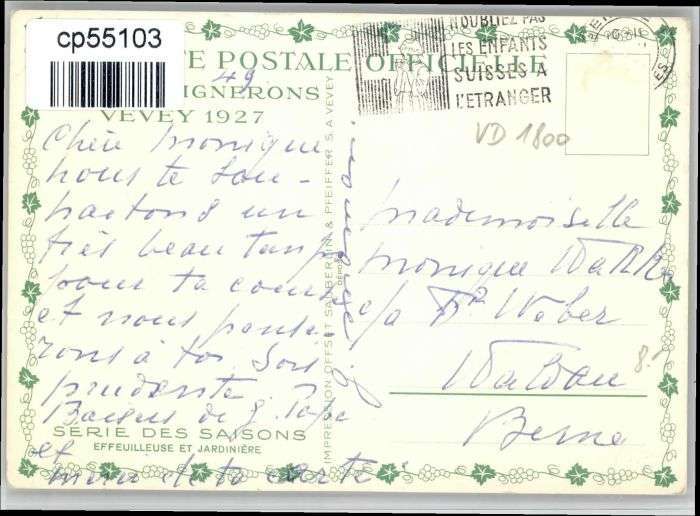 cp55103
TE POSTALE OFFICIELLE
IGNERONS
49
VEVEY 1927
N'OUBLIEZ PAS
LES ENFANTS
SUISSES A
L'ETRANGER
VD 1800
Chère Monique,
nous te sou-
haitons un
très beau temps
pour ta course
et nous pense-
rons à toi. Sois
prudente.
Baisers de
Papa
et
SERIE DES SAISONS
EFFEUILLEUSE ET JARDINIÈRE
IMPRESSION OFFSET SAUBERLIN & PFEIFFER S.A VEVEY
DÉPOSÉ
Mademoiselle
Monique
c/o Dr Weber
Waldau
Berne
8.-